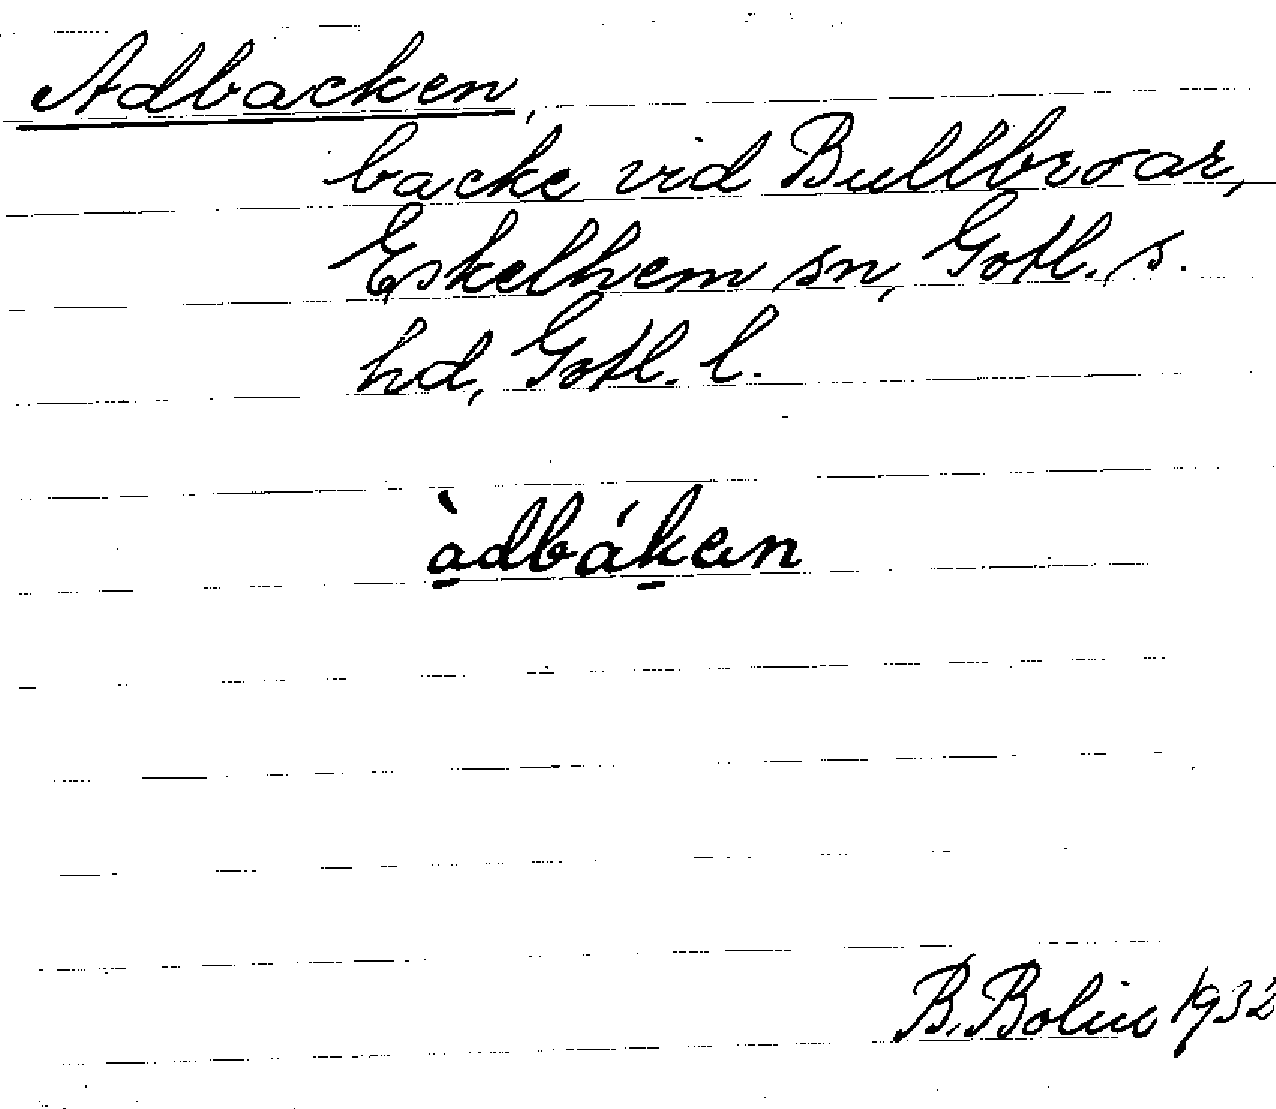 Adbacken,
backe vid Bullbroar,
Eskelhem sn, Gotl. s.
hd, Gotl. l.
àdbákan
B. Bolin 1932